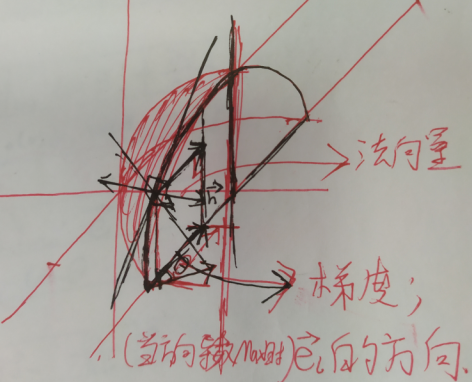 法向量
n
梯度；
(当方向导数max时) e_l的方向.